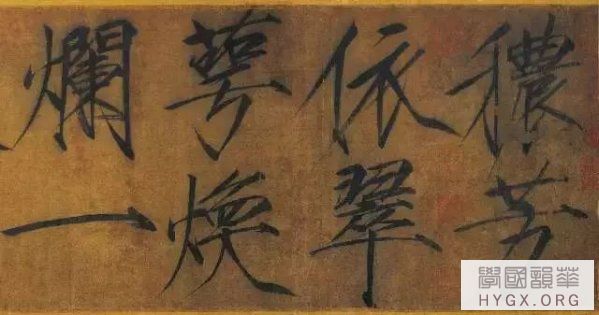 穠芳
依翠
萼煥
爛一
華韻國學
HYGX.ORG